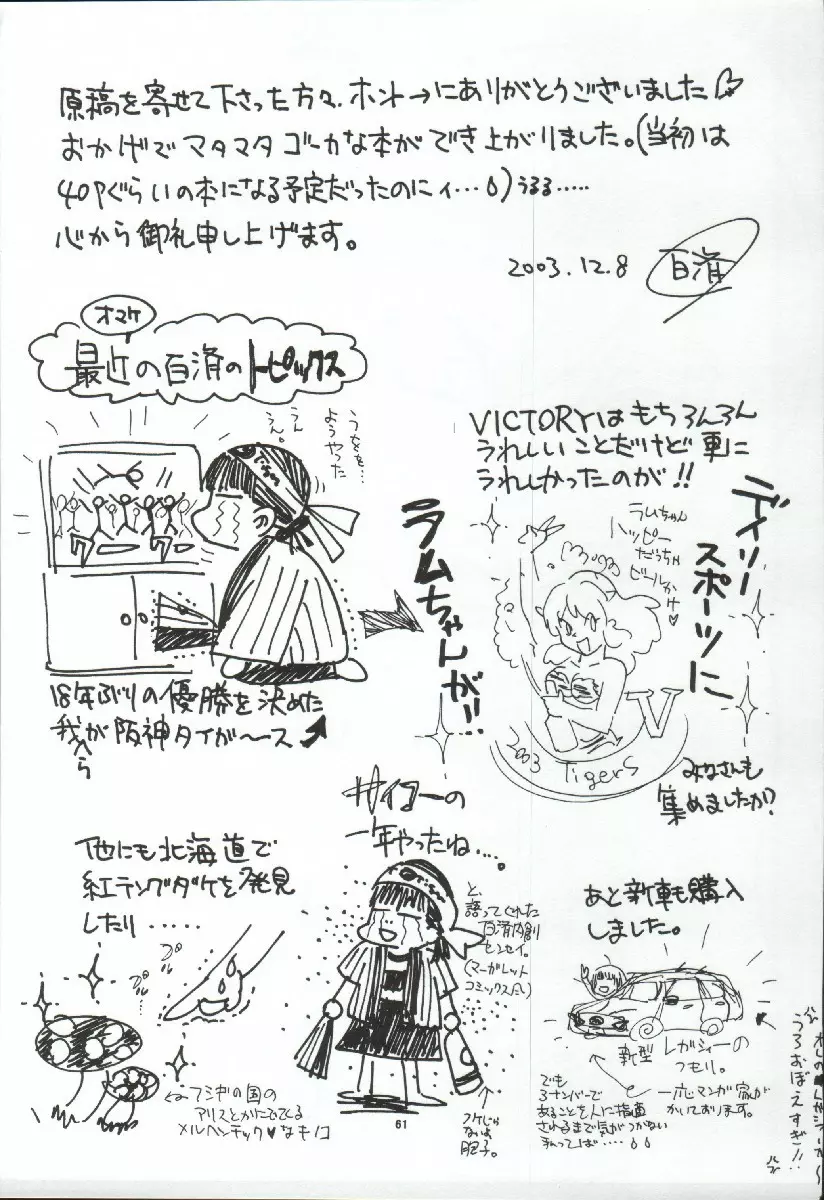 原稿を寄せて下さった方々、ホントーにありがとうございました
おかげで マタマタ ゴーカな本ができ上がりました。(当初は
40Pぐらいの本になる予定だったのにィ…)うるる……
心から御礼申し上げます。
2003.12.8
百済
オマケ
最近の百済のトピックス
ううを…
ようやった
うえ
え。
18年ぶりの優勝を決めた
我が阪神タイガ〜ース
へら
VICTORYはもちろんろん
うれしいことだけど更に
うれしかったのが!!
デイリー
スポーツに
ラムちゃんが!!
ラムちゃん
ハッピー
だっちゃ
ビールかけ♥
V
2003 Tigers
みなさんも
集めましたか?
サイコーの
一年やったね…。
と、
語ってくれた
百済内創
センセイ。
(マーガレット
コミックスだし)
他にも北海道で
紅テングダケを発見
したり……
プル
プル
フシギの国の
アリスとかにでてくる
メルヘンチック♥なキノコ
あと新車も購入
しました。
新型 レガシィーの
つもり。
一応マンガ家が
かいております。
でも
3ナンバーで
あることを人に指摘
されるまで気がつかない
私ってば……
うろおぼえすぎ!!
61